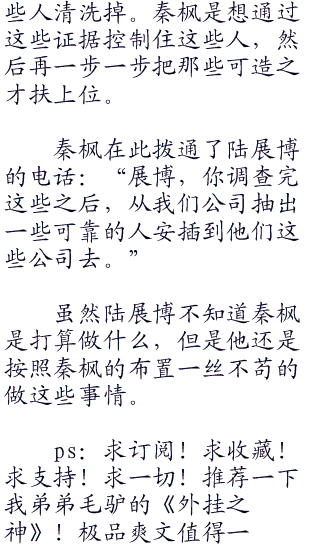 些人清洗掉。秦枫是想通过
这些证据控制住这些人，然
后再一步一步把那些可造之
才扶上位。
秦枫在此拨通了陆展博
的电话：“展博，你调查完
这些之后，从我们公司抽出
一些可靠的人安插到他们这
些公司去。”
虽然陆展博不知道秦枫
是打算做什么，但是他还是
按照秦枫的布置一丝不苟的
做这些事情。
ps：求订阅！求收藏！
求支持！求一切！推荐一下
我弟弟毛驴的《外挂之
神》！极品爽文值得一